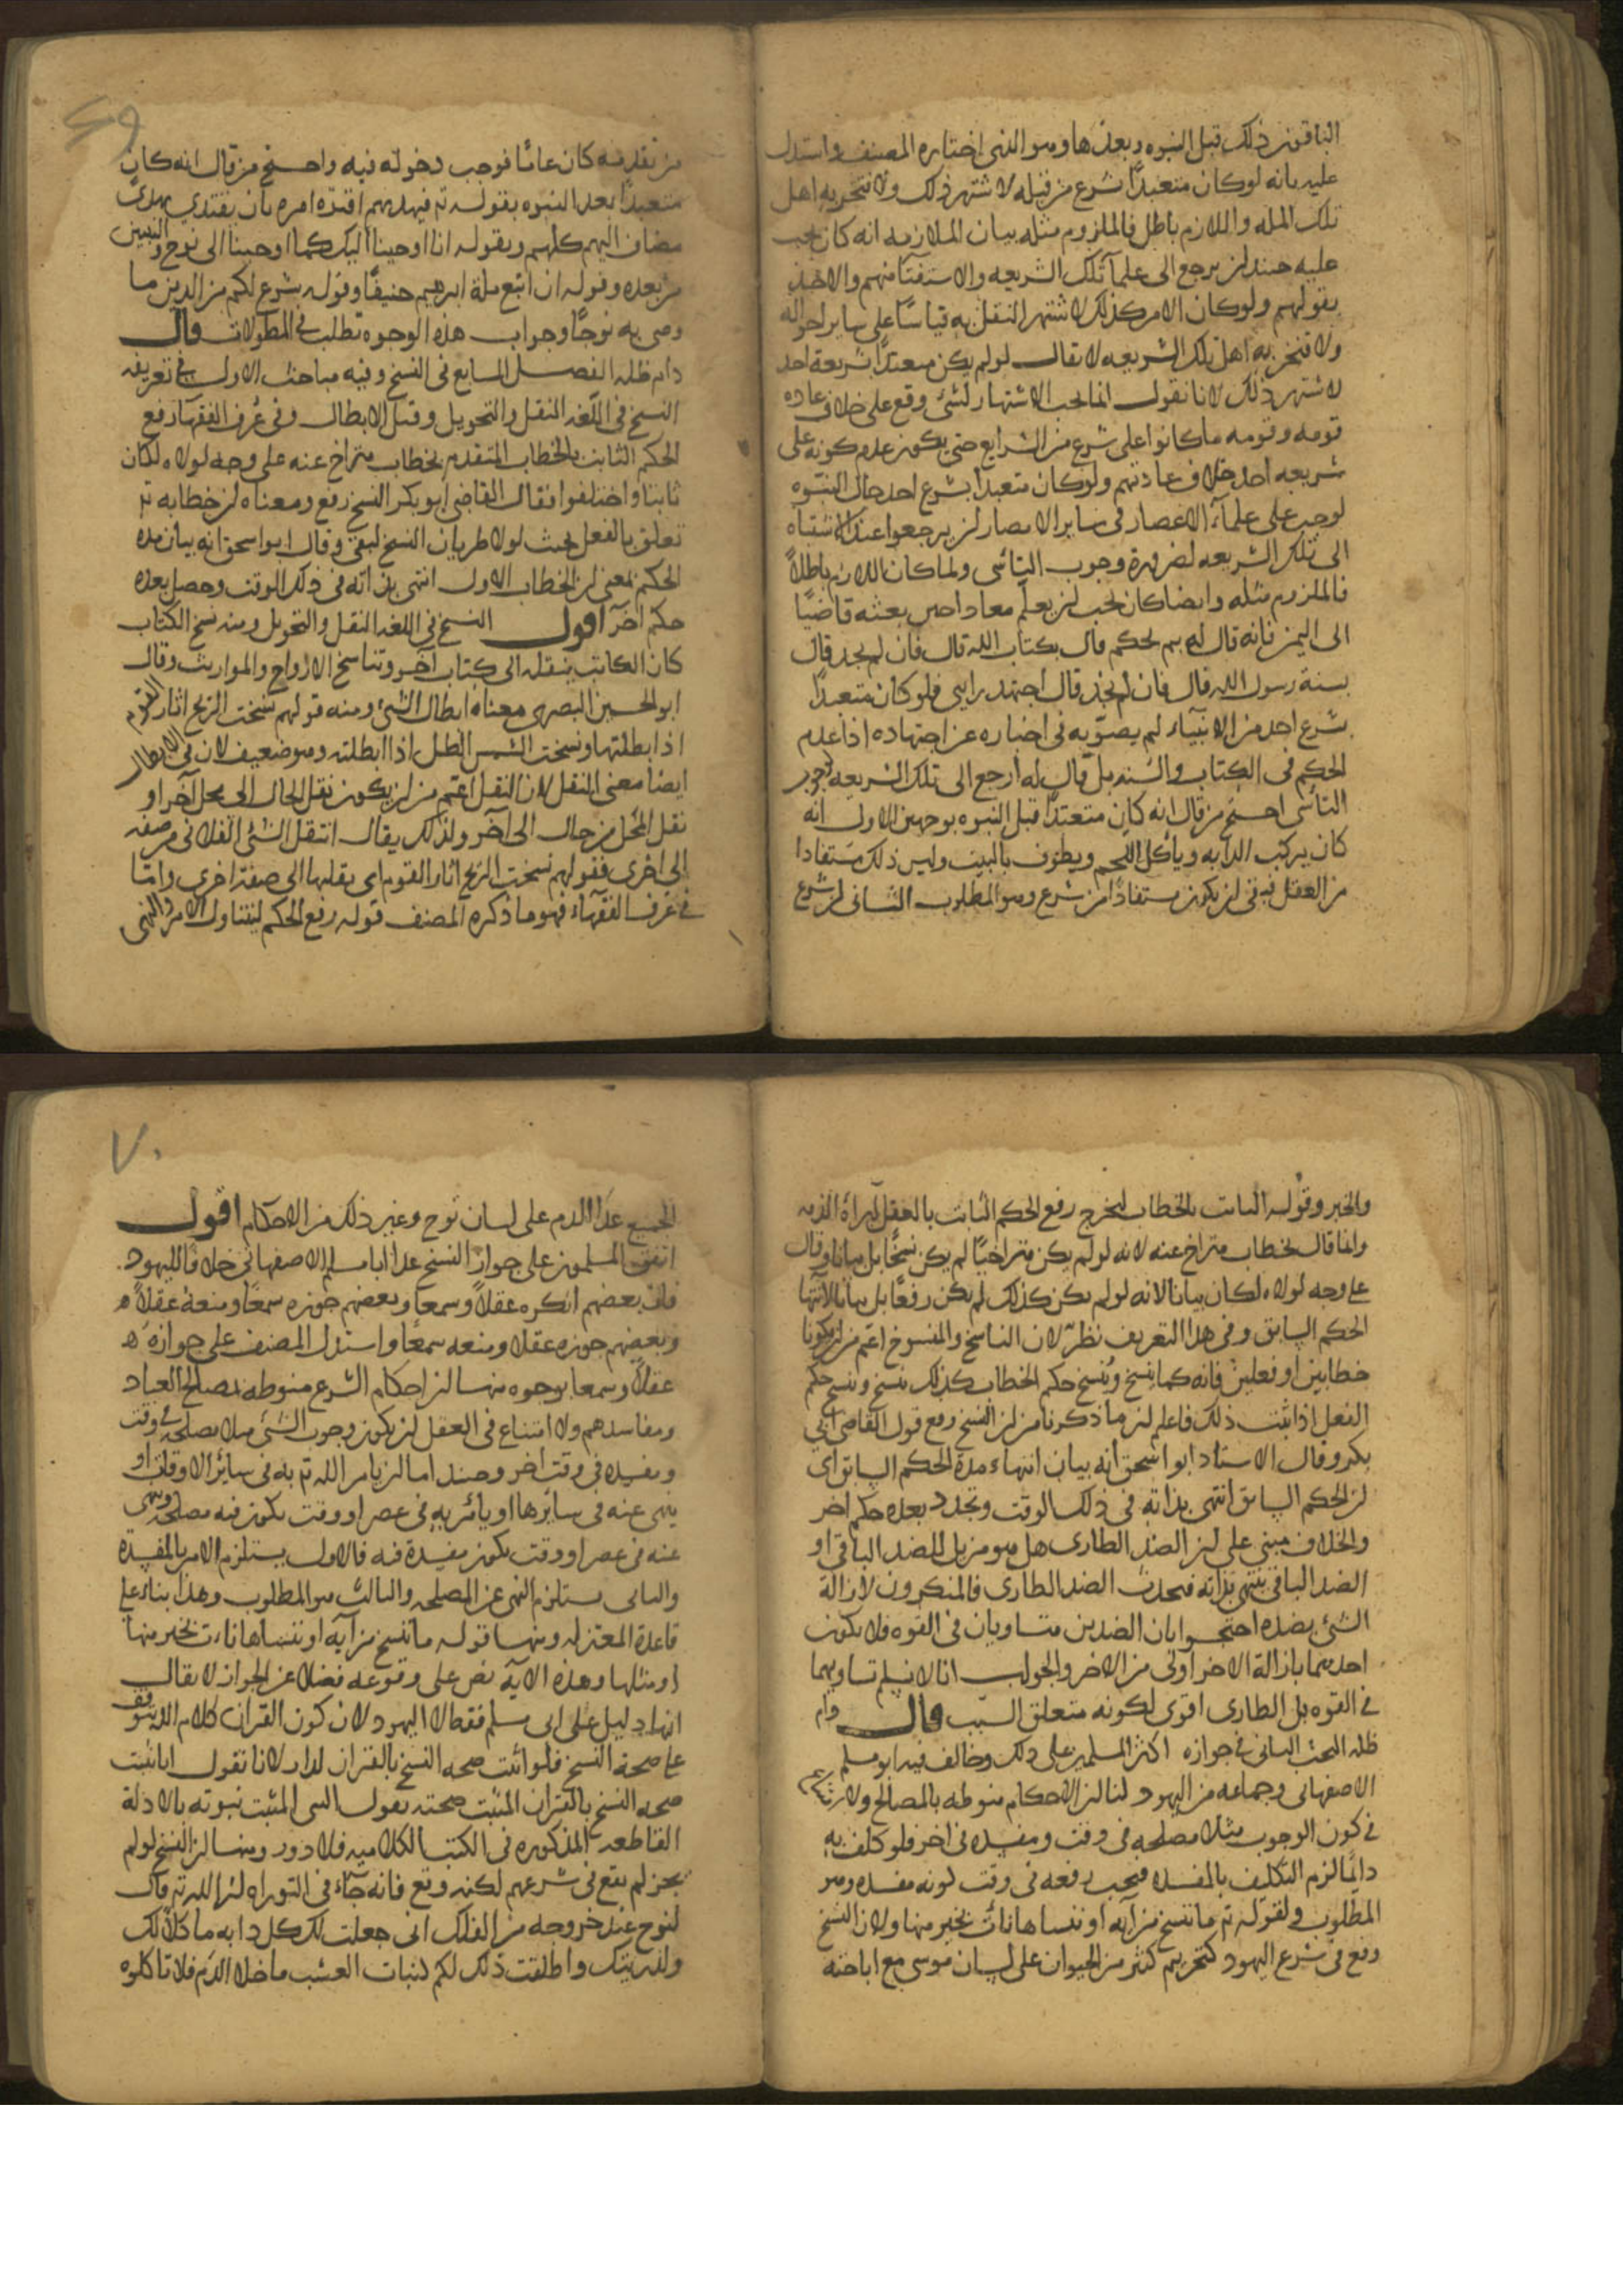 الباقون ذلك قبل النبوه وبعدها وهو الذى اختاره المصنف واستدل
عليه بانه لو كان متعبدًا بشرع من قبله لاشتهر ذلك ولافتخر به اهل
تلك المله واللازم باطل فالملزوم مثله بيان الملازمه انه كان يجب
عليه حينئذ لن يرجع الى علمآ تلك الشريعه والاستفتا منهم والاخذ
بقولهم ولو كان الامر كذلك لاشتهر النقل به قياسًا على ساير احواله
ولافتخر به اهل تلك الشريعه لا يقال لو لم يكن متعبدًا بشريعة احد
لاشتهر ذلك لانا نقول انما يجب الاشتهار لشئ وقع على خلاف عاده
قومه وقومه ما كانوا على شرع من الشرايع حتى يكون عدم كونه على
شريعه احد خلاف عادتهم ولو كان متعبدا بشرع احد حال النبوه
لوجب على علمآء الاعصار فى ساير الامصار لن يرجعوا عند الاشتباه
الى تلك الشريعه لضرورة وجوب التاسى ولما كان اللازم باطلاً
فالملزوم مثله وايضا كان يجب لن يعلم معاذا حين بعثه قاضيًا
الى اليمن فانه قال له بم تحكم قال بكتاب الله قال فان لم تجد قال
بسنة رسول الله قال فان لم تجد قال اجتهد رايى فلو كان متعبدًا
بشرع احد من الانبيآء لم يصوّبه فى اخباره عن اجتهاده اذا عدم
الحكم فى الكتاب والسنه بل قال له ارجع الى تلك الشريعه لوجوب
التأسى احتج من قال انه كان متعبدًا قبل النبوه بوجهين الاول انه
كان يركب الدابه وياكل اللحم ويطوف بالبيت وليس ذلك مستفادا
من العقل فبقى لن يكون مستفادًا من شرع وهو المطلوب الثانى لن شرع
٦٩
من تقدمه كان عامًا فوجب دخوله فيه واحتج من قال انه كان
متعبدًا بعد النبوه بقوله تم فبهديهم اقتده امره بان يقتدى بهدى
مضاف اليهم كلهم وبقوله انا اوحينا اليك كما اوحينا الى نوح والنبيين
من بعده وقوله ان اتبع ملة ابرهيم حنيفًا وقوله شرع لكم من الدين ما
وصى به نوحًا وجواب هذه الوجوه تطلب فى المطولات قال
دام ظله الفصل السابع فى النسخ وفيه مباحث الاول فى تعريفه
النسخ فى اللغه النقل والتحويل وقيل الابطال وفى عُرف الفقهآ رفع
الحكم الثابت بالخطاب المتقدم بخطاب متراخ عنه على وجه لولاه لكان
ثابتا واختلفوا فقال القاضى ابو بكر النسخ رفع ومعناه لن خطابه تم
تعلق بالفعل بحيث لولا طريان النسخ لبقى وقال ابو اسحق انه بيان مده
الحكم بمعنى لن الخطاب الاول انتهى بذاته فى ذلك الوقت وحصل بعده
حكم آخر اقول النسخ فى اللغه النقل والتحويل ومنه نسخ الكتاب
كان الكاتب ينقله الى كتاب آخر وتناسخ الارواح والمواريث وقال
ابو الحسين البصرى معناه ابطال الشئ ومنه قولهم نسخت الريح اثار القوم
اذا ابطلتها ونسخت الشمس الظل اذا ابطلته وهو ضعيف لان فى الابطال
ايضا معنى النقل لان النقل اعم من لن يكون نقل الحال الى محل آخر او
نقل المحل من حال الى آخر ولذلك يقال انتقل الشئ الفلانى من صفه
الى اخرى فقولهم نسخت الريح اثار القوم اى نقلها الى صفة اخرى وامّا
فى عرف الفقهآء فهو ما ذكره المصنف قوله رفع الحكم ليتناول الامر والنهى
والخبر وقوله الثابت بالخطاب ليخرج رفع الحكم الثابت بالعقل كبراة الذمه
وانما قال بخطاب متراخ عنه لانه لو لم يكن متراخيًا لم يكن نسخًا بل بيانا وقال
على وجه لولاه لكان ثابتا لانه لو لم يكن كذلك لم يكن رفعًا بل بيانا لانتها
الحكم السابق وفى هذا التعريف نظر لان الناسخ والمنسوخ اعم من لن يكونا
خطابين او فعلين فانه كما ينسخ ويُنسخ حكم الخطاب كذلك ينسخ ويُنسخ حكم
الفعل اذا ثبت ذلك فاعلم لن ما ذكرنا من لن النسخ رفع قول القاضى ابى
بكر وقال الاستاد ابو اسحق انه بيان انتهاء مدة الحكم السابق اى
لن الحكم السابق انتهى بذاته فى ذلك الوقت وتجدد بعده حكم اخر
والخلاف مبنى على لن الضد الطارى هل هو مزيل للضد الباقى او
الضد الباقى ينتهى بذاته فيحدث الضد الطارى فالمنكرون لازالة
الشئ بضده احتجوا بان الضدين متساويان فى القوه فلا يكون
احدهما بازالة الاخر اولى من الاخر والجواب انا لا نسلم تساويهما
فى القوه بل الطارى اقوى لكونه متعلق السبب قال دام
ظله البحث الثانى فى جوازه اكثر المسلمين على ذلك وخالف فيه ابو مسلم
الاصفهانى وجماعه من اليهود لنا لن الاحكام منوطه بالمصالح ولا
فى كون الوجوب مثلا مصلحه فى وقت ومفسده فى اخر فلو كلف به
دايمًا لزم التكليف بالمفسده فيجب رفعه فى وقت كونه مفسده وهو
المطلوب ولقوله تم ما ننسخ من آية او ننساها نات بخير منها ولان النسخ
وقع فى شرع اليهود كتحريم كثير من الحيوان على لسان موسى مع اباحته
٧٠
الجميع عدا الدم على لسان نوح وغير ذلك من الاحكام اقول
اتفق المسلمون على جواز النسخ عدا ابا مسلم الاصفهانى خلافا لليهود
فان بعضهم انكره عقلاً وسمعا وبعضهم جوزه سمعًا ومنعه عقلاً
وبعضهم جوزه عقلا ومنعه سمعًا واستدل المصنف على جوازه
عقلاً وسمعا بوجوه منها لن احكام الشرع منوطه بمصالح العباد
ومفاسدهم ولا امتناع فى العقل لن يكون وجوب الشئ مثلا مصلحه فى وقت
ومفسده فى وقت اخر وحينئذ اما لن يامر الله تم به فى سائر الاوقات او
ينهى عنه فى سايرها او يأمر به فى عصر او وقت يكون فيه مصلحه وينهى
عنه فى عصر او وقت يكون مفسدة فيه فالاول يستلزم الامر بالمفسدة
والثانى يستلزم النهى عن المصلحه والثالث هو المطلوب وهذا بناء على
قاعدة المعتزله ومنها قوله ما ننسخ من آيه او ننساها نات بخير منها
او مثلها وهذه الآيه نص على وقوعه فضلا عن الجواز لا يقال
انها دليل على ابى مسلم فقط لا اليهود لان كون القران كلام الله يتوقف
على صحة النسخ فلو اثبت صحه النسخ بالقران لدار لانا نقول انا نثبت
صحه النسخ بالقران المثبت صحته بقول النبى المثبت نبوته بالادلة
القاطعه المذكوره فى الكتب الكلاميه فلا دور ومنها لن النسخ لو لم
يجز لم يقع فى شرعهم لكنه وقع فانه جآء فى التوراه لن الله تم قال
لنوح عند خروجه من الفلك انى جعلت لك كل دابه ماكلاً لك
ولذريتك واطلقت ذلك لكم كنبات العشب ما خلا الدم فلا تاكلوه